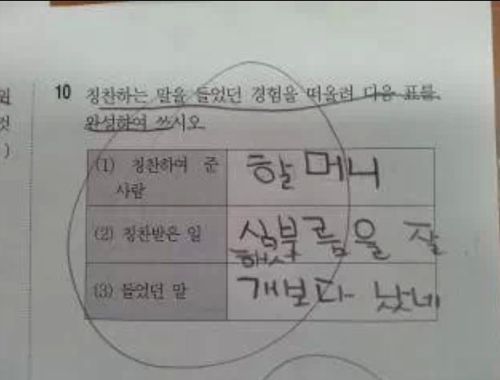 10 칭찬하는 말을 들었던 경험을 떠올려 다음 표를
완성하여 쓰시오
(1) 칭찬하여 준
사람
할머니
(2) 칭찬받은 일
심부름을 잘
해서
(3) 들었던 말
개보다 낫네